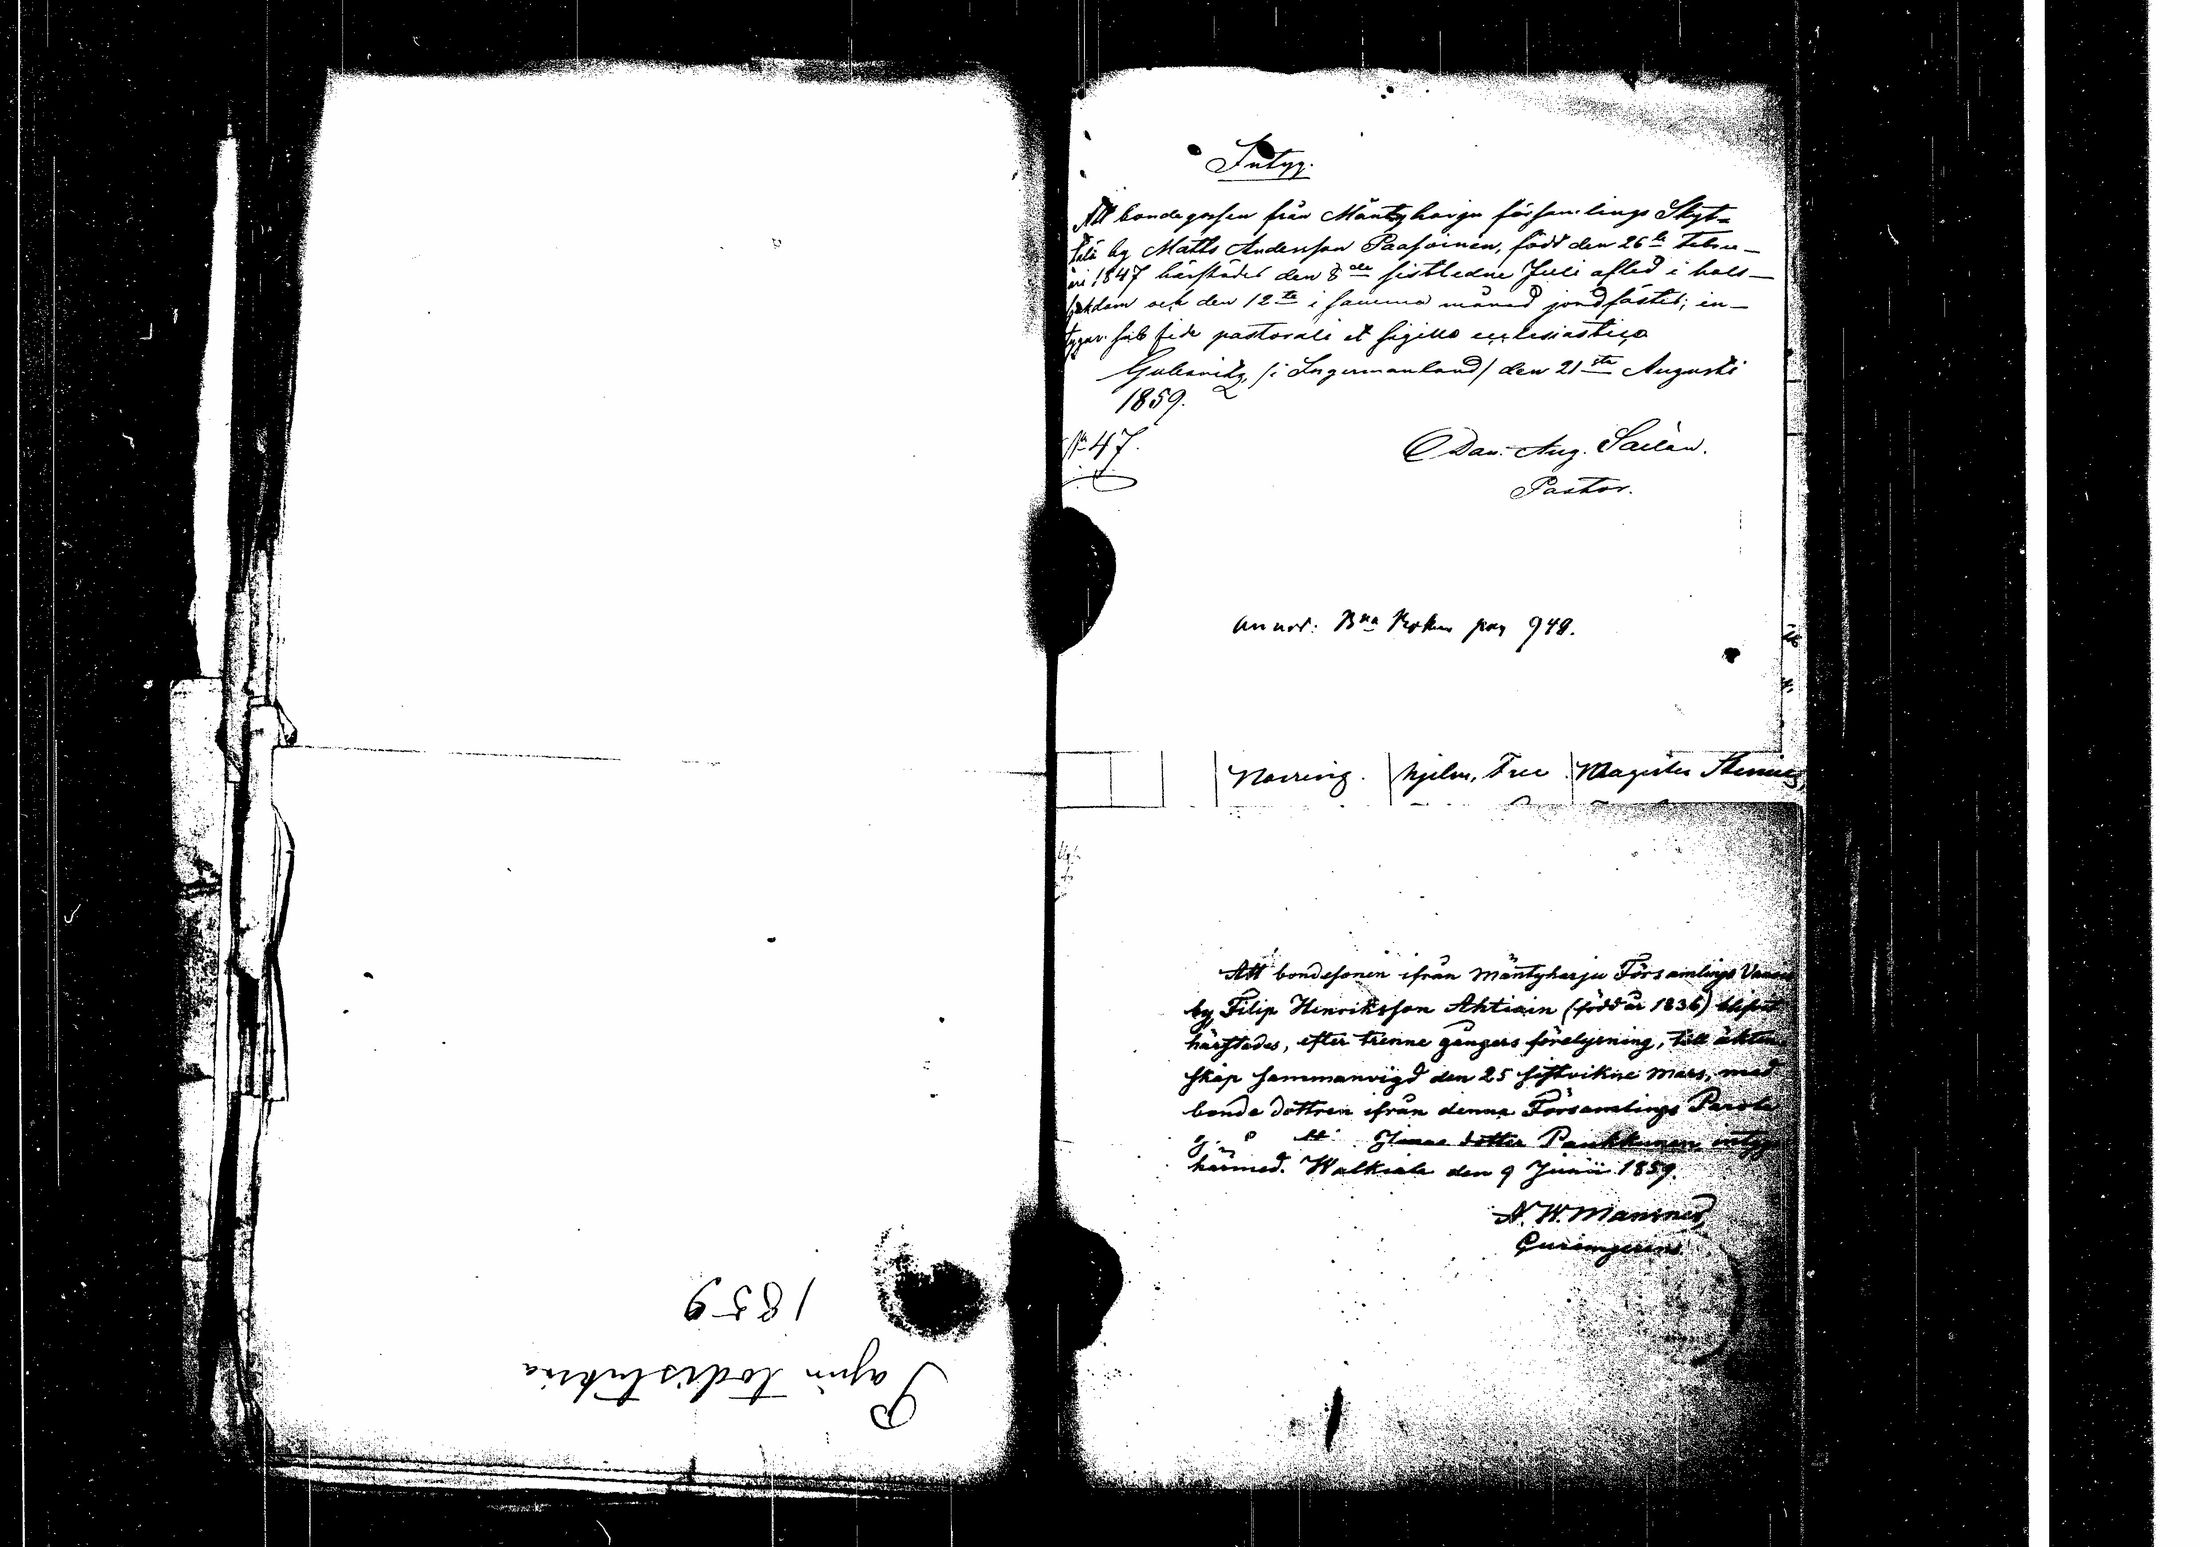 Papin todistuksia
1859
Intyg.
Att bondegossen från Mäntyharju församlings Skyt-
tälä by Matts Andersson Paasoinen, född den 26te Febru-
ari 1847 härstädes den 8de sistledne Juli afled i hals-
sjukdom och den 12te i samma månad jordfästes; in-
tygar sub fide pastorali et sigillo ecclesiastico
Gubanitz, /i Ingermanland/ den 21sta Augusti
1859.
No 47.
Dan. Aug. Sailén.
Pastor.
pag 948.
Norring. hjelm, Fre Magister
Att bondesonen ifrån Mäntyharju Församlings
by Filip Henriksson Ahtiain (född år 1836) blifvit
härstades, efter trenne gångers förelysning, till äkten-
skap sammanvigd den 25 sistvikne Mars, med
bonde dottren ifrån denna Församlings Parola
dotter Paukkunen, intygas
härmed. Walkiala den 9 Junii 1859.